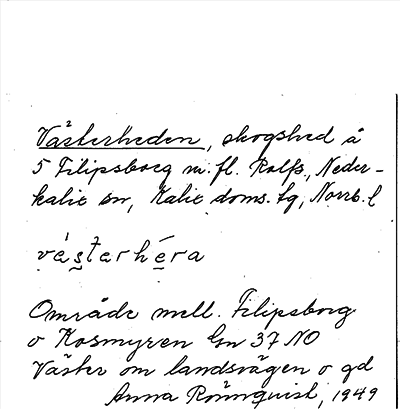 Västerheden, skogshed å
5 Filipsborg m. fl. Rolfs, Neder-
kalix sn, Kalix doms. tg, Norrb. l
västerhéra
Område mell. Filipsborg
o Kosmyren Gn 37 NO
Väster om landsvägen o gd
Anna Rönnquist, 1949